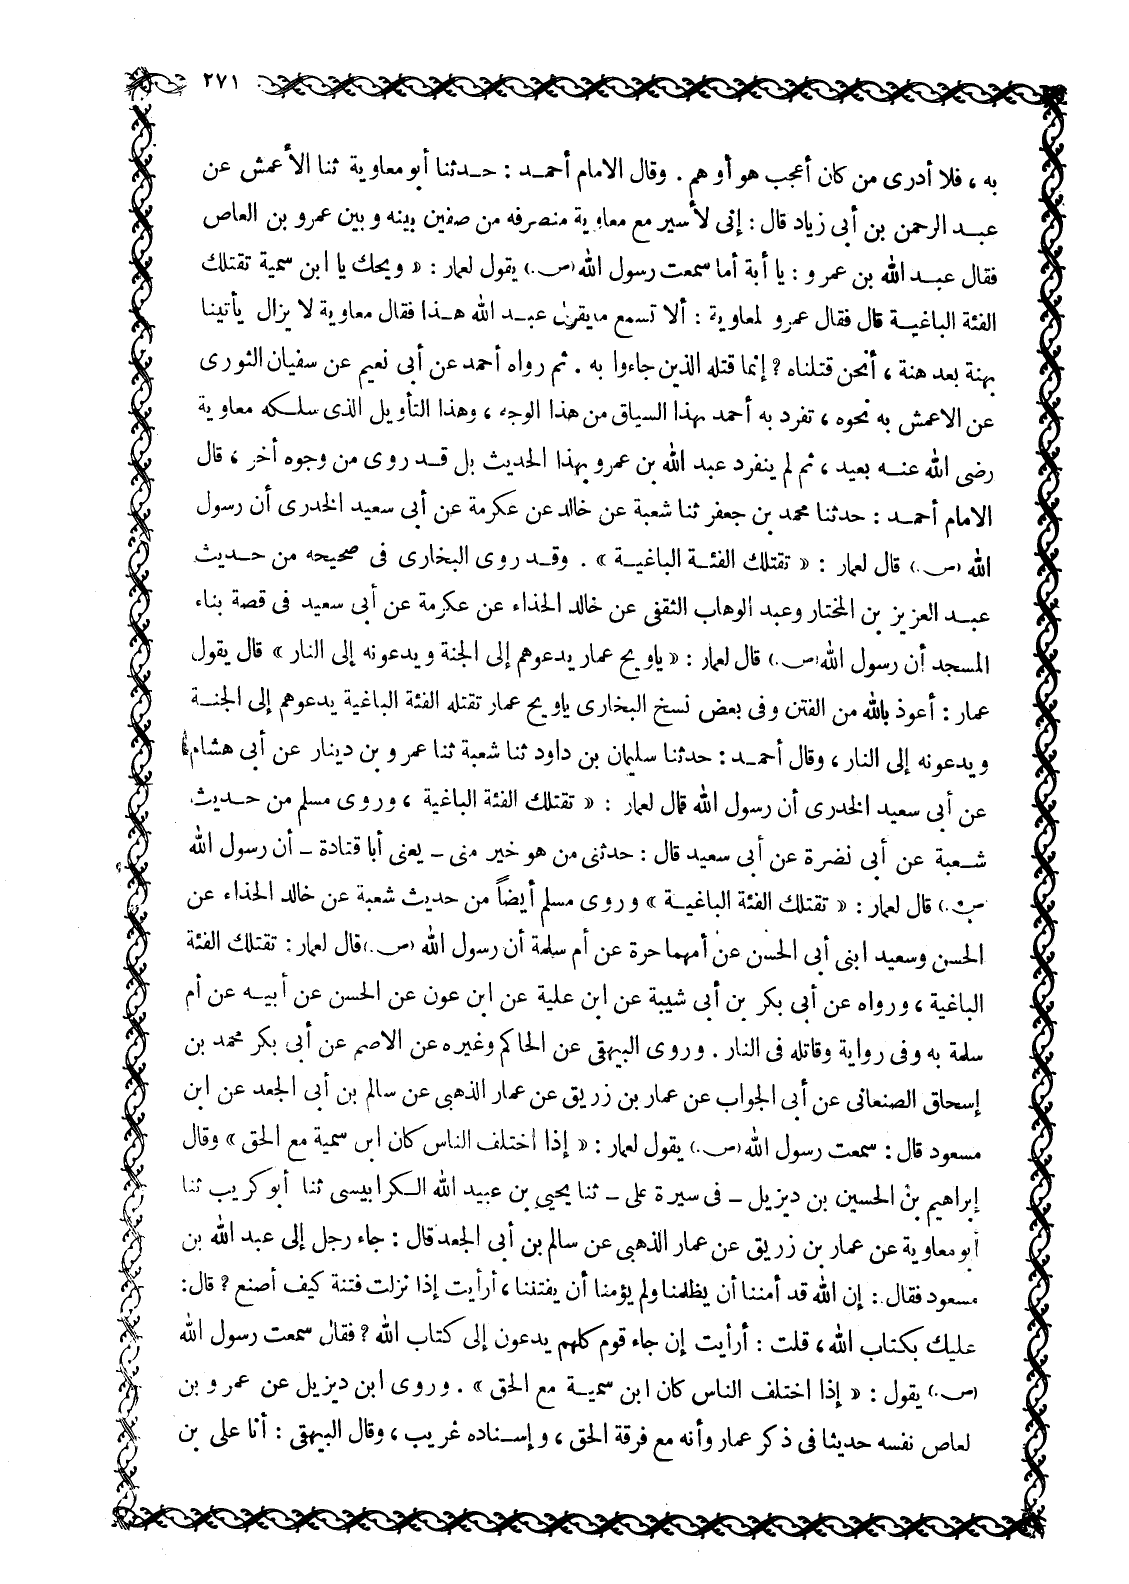 ٢٧١
به ، فلا أدرى من كان أعجب هو أو هم . وقال الامام أحمـد : حـدثنا أبو معاوية ثنا الأعمش عن
عبـد الرحمن بن أبى زياد قال : إنى لأسير مع معاوية منصرفه من صفين بينه وبين عمرو بن العاص
فقال عبـد الله بن عمرو : يا أبة أما سمعت رسول الله (ص.) يقول لعمار : « ويحك يا ابن سمية تقتلك
الفئة الباغيـة قال فقال عمرو لمعاوية : ألا تسمع ما يقول عبـد الله هـذا فقال معاوية لا يزال يأتينا
بهنة بعد هنة ، أنحن قتلناه ؟ إنما قتله الذين جاءوا به . ثم رواه أحمد عن أبى نعيم عن سفيان الثورى
عن الاعمش به نحوه ، تفرد به أحمد بهذا السياق من هذا الوجه ، وهذا التأويل الذى سلـكه معاوية
رضى الله عنـه بعيد ، ثم لم ينفرد عبد الله بن عمرو بهذا الحديث بل قـد روى من وجوه أخر ، قال
الامام أحمـد : حدثنا محمد بن جعفر ثنا شعبة عن خالد عن عكرمة عن أبى سعيد الخدرى أن رسول
الله (ص.) قال لعمار : « تقتلك الفئـة الباغيـة » . وقـد روى البخارى فى صحيحه من حـديث
عبـد العزيز بن المختار وعبد الوهاب الثقفى عن خالد الحذاء عن عكرمة عن أبى سعيد فى قصة بناء
المسجد أن رسول الله (ص.) قال لعمار : « ياويح عمار يدعوهم إلى الجنة ويدعونه إلى النار » قال يقول
عمار : أعوذ بالله من الفتن وفى بعض نسخ البخارى ياويح عمار تقتله الفئة الباغية يدعوهم إلى الجنـة
ويدعونه إلى النار ، وقال أحمـد : حدثنا سليمان بن داود ثنا شعبة ثنا عمرو بن دينار عن أبى هشام
عن أبى سعيد الخدرى أن رسول الله قال لعمار : « تقتلك الفئة الباغية ، وروى مسلم من حـديث
شـعبة عن أبى نضرة عن أبى سعيد قال : حدثنى من هو خير منى ـ يعنى أبا قتادة ـ أن رسول الله
(ص.) قال لعمار : « تقتلك الفئة الباغيـة » وروى مسلم أيضاً من حديث شعبة عن خالد الحذاء عن
الحسن وسعيد ابنى أبى الحسن عن أمهما حرة عن أم سلمة أن رسول الله (ص.) قال لعمار : تقتلك الفئة
الباغية ، ورواه عن أبى بكر بن أبى شيبة عن ابن علية عن ابن عون عن الحسن عن أبيـه عن أم
سلمة به وفى رواية وقاتله فى النار . وروى البيهقى عن الحاكم وغيره عن الاصم عن أبى بكر محمد بن
إسحاق الصنعانى عن أبى الجواب عن عمار بن زريق عن عمار الذهبى عن سالم بن أبى الجعد عن ابن
مسعود قال : سمعت رسول الله (ص.) يقول لعمار : « إذا اختلف الناس كان ابن سمية مع الحق » وقال
إبراهيم بن الحسين بن ديزيل ـ فى سيرة على ـ ثنا يحيى بن عبيد الله الـكرابيسى ثنا أبو كريب ثنا
أبو معاوية عن عمار بن زريق عن عمار الذهبى عن سالم بن أبى الجعد قال : جاء رجل إلى عبد الله بن
مسعود فقال : إن الله قد أمننا أن يظلمنا ولم يؤمنا أن يفتننا ، أرأيت إذا نزلت فتنة كيف أصنع ؟ قال :
عليك بكتاب الله ، قلت : أرأيت إن جاء قوم كلهم يدعون إلى كتاب الله ؟ فقال سمعت رسول الله
(ص.) يقول : « إذا اختلف الناس كان ابن سميـة مع الحق » . وروى ابن ديزيل عن عمرو بن
لعاص نفسه حديثا فى ذكر عمار وأنه مع فرقة الحق ، وإسـناده غريب ، وقال البيهقى : أنا على بن